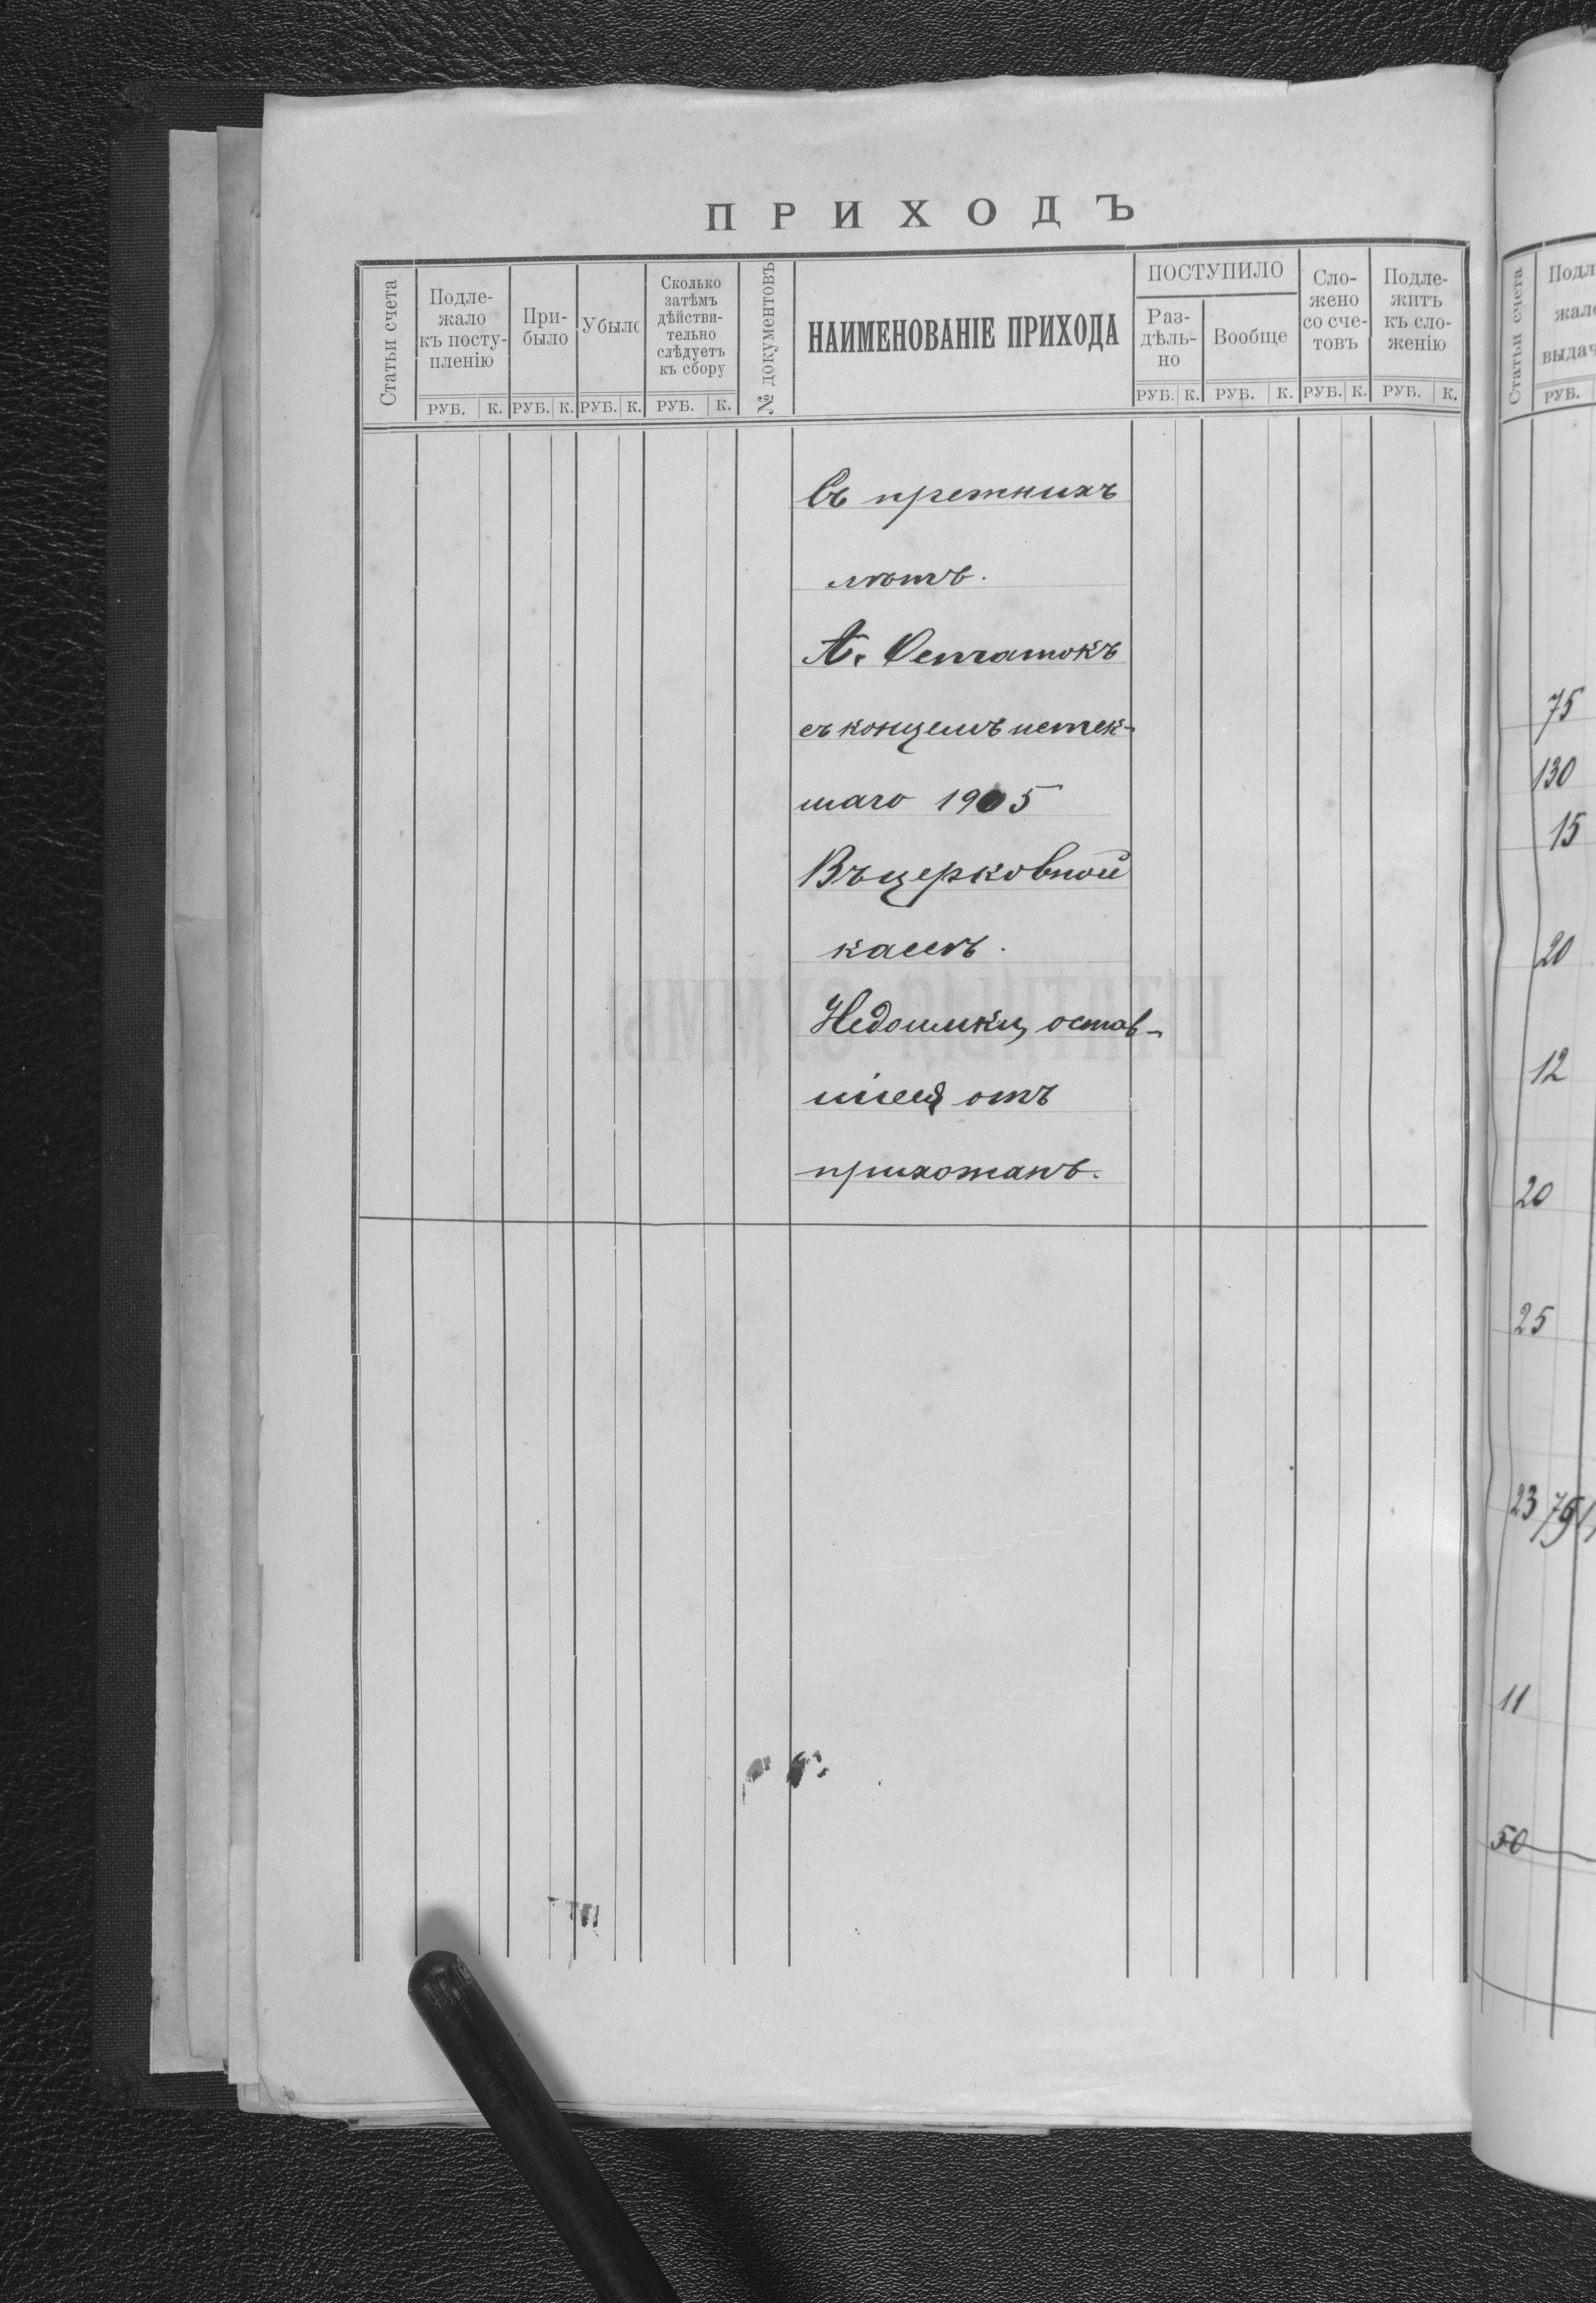 ПРИХОДЪ
Статьи счета
Подле-
жало
къ посту-
пленію
При-
было
Убыло
Сколько
затѣмъ
дѣйстви-
тельно
слѣдуетъ
къ сбору
№ документовъ
НАИМЕНОВАНІЕ ПРИХОДА
ПОСТУПИЛО
Раз-
дѣль-
но
Вообще
Сло-
жено
со сче-
товъ
Подле-
житъ
къ сло-
женію
РУБ. К. РУБ. К. РУБ. К. РУБ. К. РУБ. К. РУБ. К. РУБ. К. РУБ. К.
Съ прежнихъ
лѣтъ.
А. Остатокъ
съ концемъ истек-
шаго 1905
Въ церковной
кассѣ.
Недоимки, остав-
шіеся отъ
прихожанъ.
Статьи счета
Подл
жало
выдач
РУБ.
75
130
15
20
12
20
25
23 76
11
50